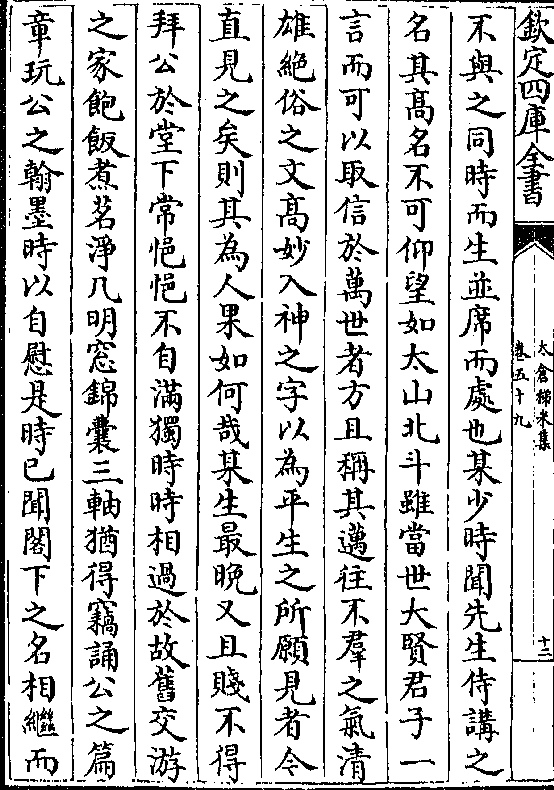 欽定四庫全書
太倉稊米集
卷五十九
十三
不與之同時而生並席而處也某少時聞先生侍講之
名其髙名不可仰望如太山北斗雖當世大賢君子一
言而可以取信於萬世者方且稱其邁往不羣之氣清
雄絶俗之文髙妙入神之字以為平生之所願見者今
直見之矣則其為人果如何哉某生最晚又且賤不得
拜公於堂下常悒悒不自滿獨時時相過於故舊交游
之家飽飯煮茗淨几明窓錦囊三軸猶得竊誦公之篇
章玩公之翰墨時以自慰是時已聞閣下之名相繼而